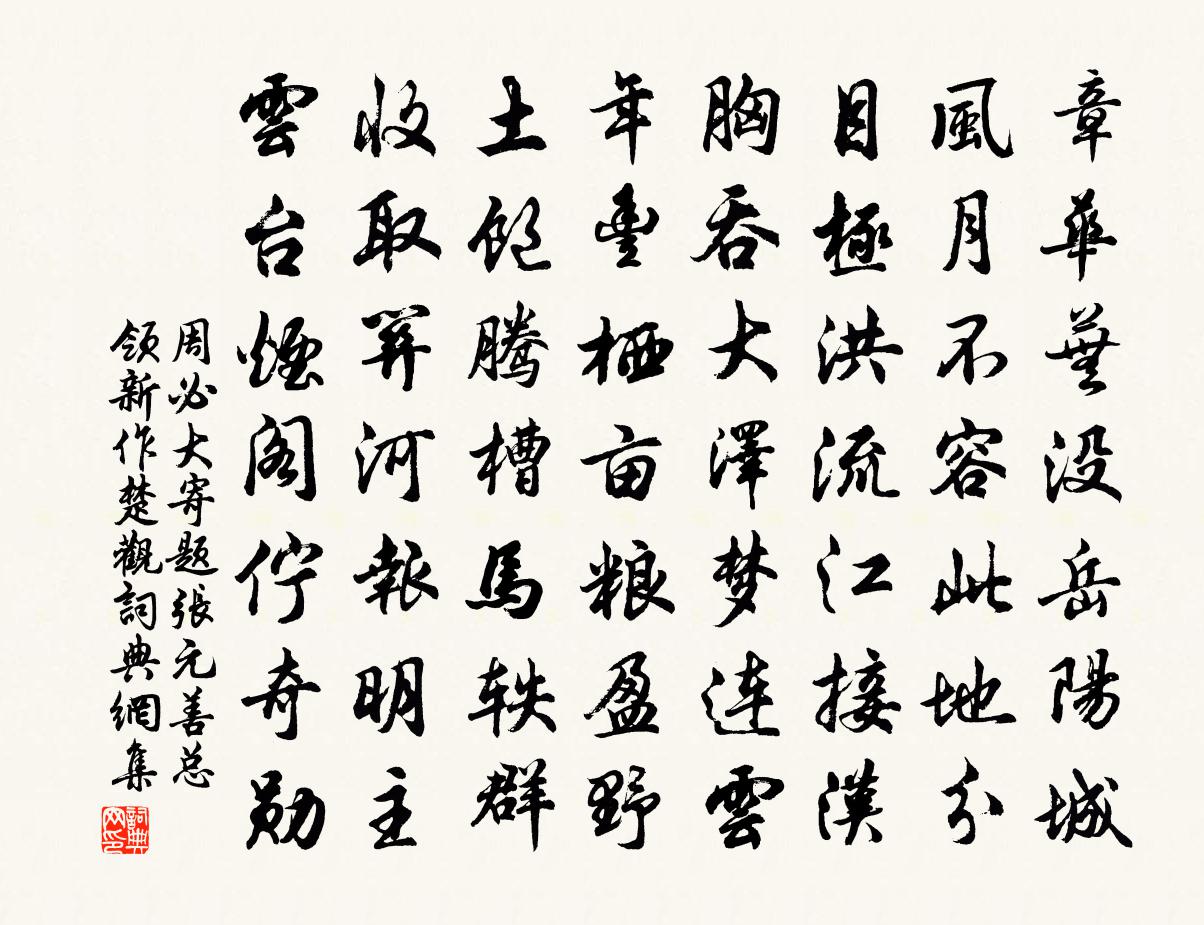 章華蕪没岳陽城
風月不容此地分
目極洪流江接漢
胸吞大澤梦連雲
年豊栖亩粮盈野
土飽騰槽馬轶群
收取関河報明主
雲台煙阁佇奇勋
周必大寄题張元善总
领新作楚觀詞典網集
詞典网印